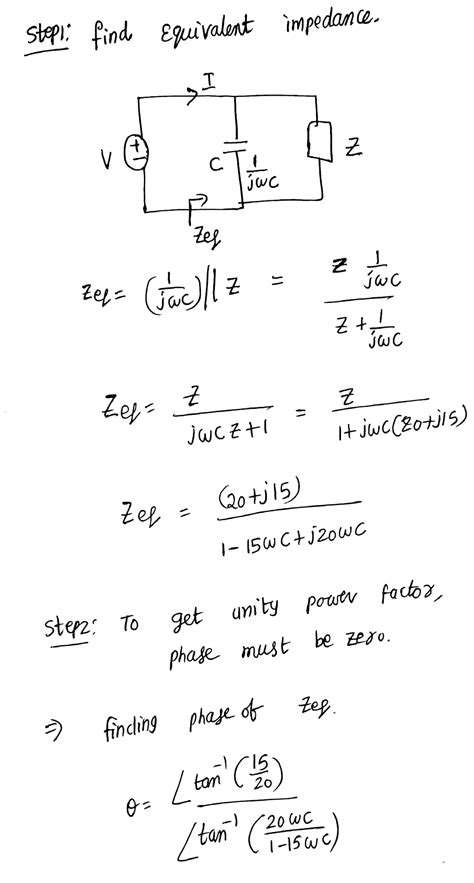 Step1: find Equivalent impedance.
I
V
+
-
C
1/jωC
Z
Zeq
Zeq = (1/jωC) || Z = Z 1/jωC / Z + 1/jωC
Zeq = Z / jωCZ+1 = Z / 1+jωC(20+j15)
Zeq = (20+j15) / 1-15ωC+j20ωC
Step2: To get unity power factor,
phase must be zero.
⇒ finding phase of Zeq.
θ = ∠tan⁻¹(15/20) / ∠tan⁻¹(20ωC/1-15ωC)